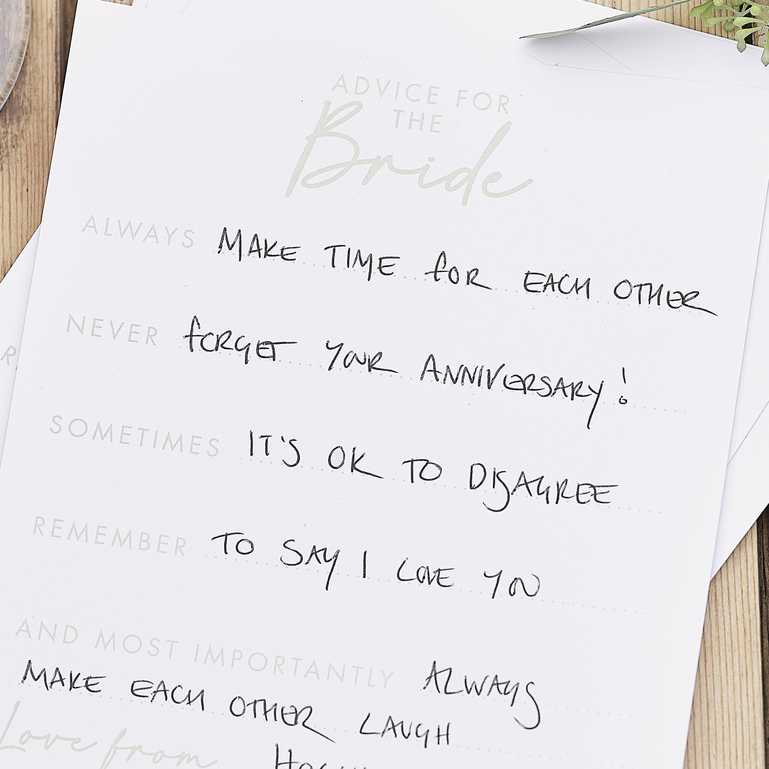 ADVICE FOR
THE
Bride
ALWAYS MAKE TIME FOR EACH OTHER
NEVER FORGET YOUR ANNIVERSARY!
SOMETIMES IT'S OK TO DISAGREE
REMEMBER TO SAY I LOVE YOU
AND MOST IMPORTANTLY ALWAYS
MAKE EACH OTHER LAUGH
Love from